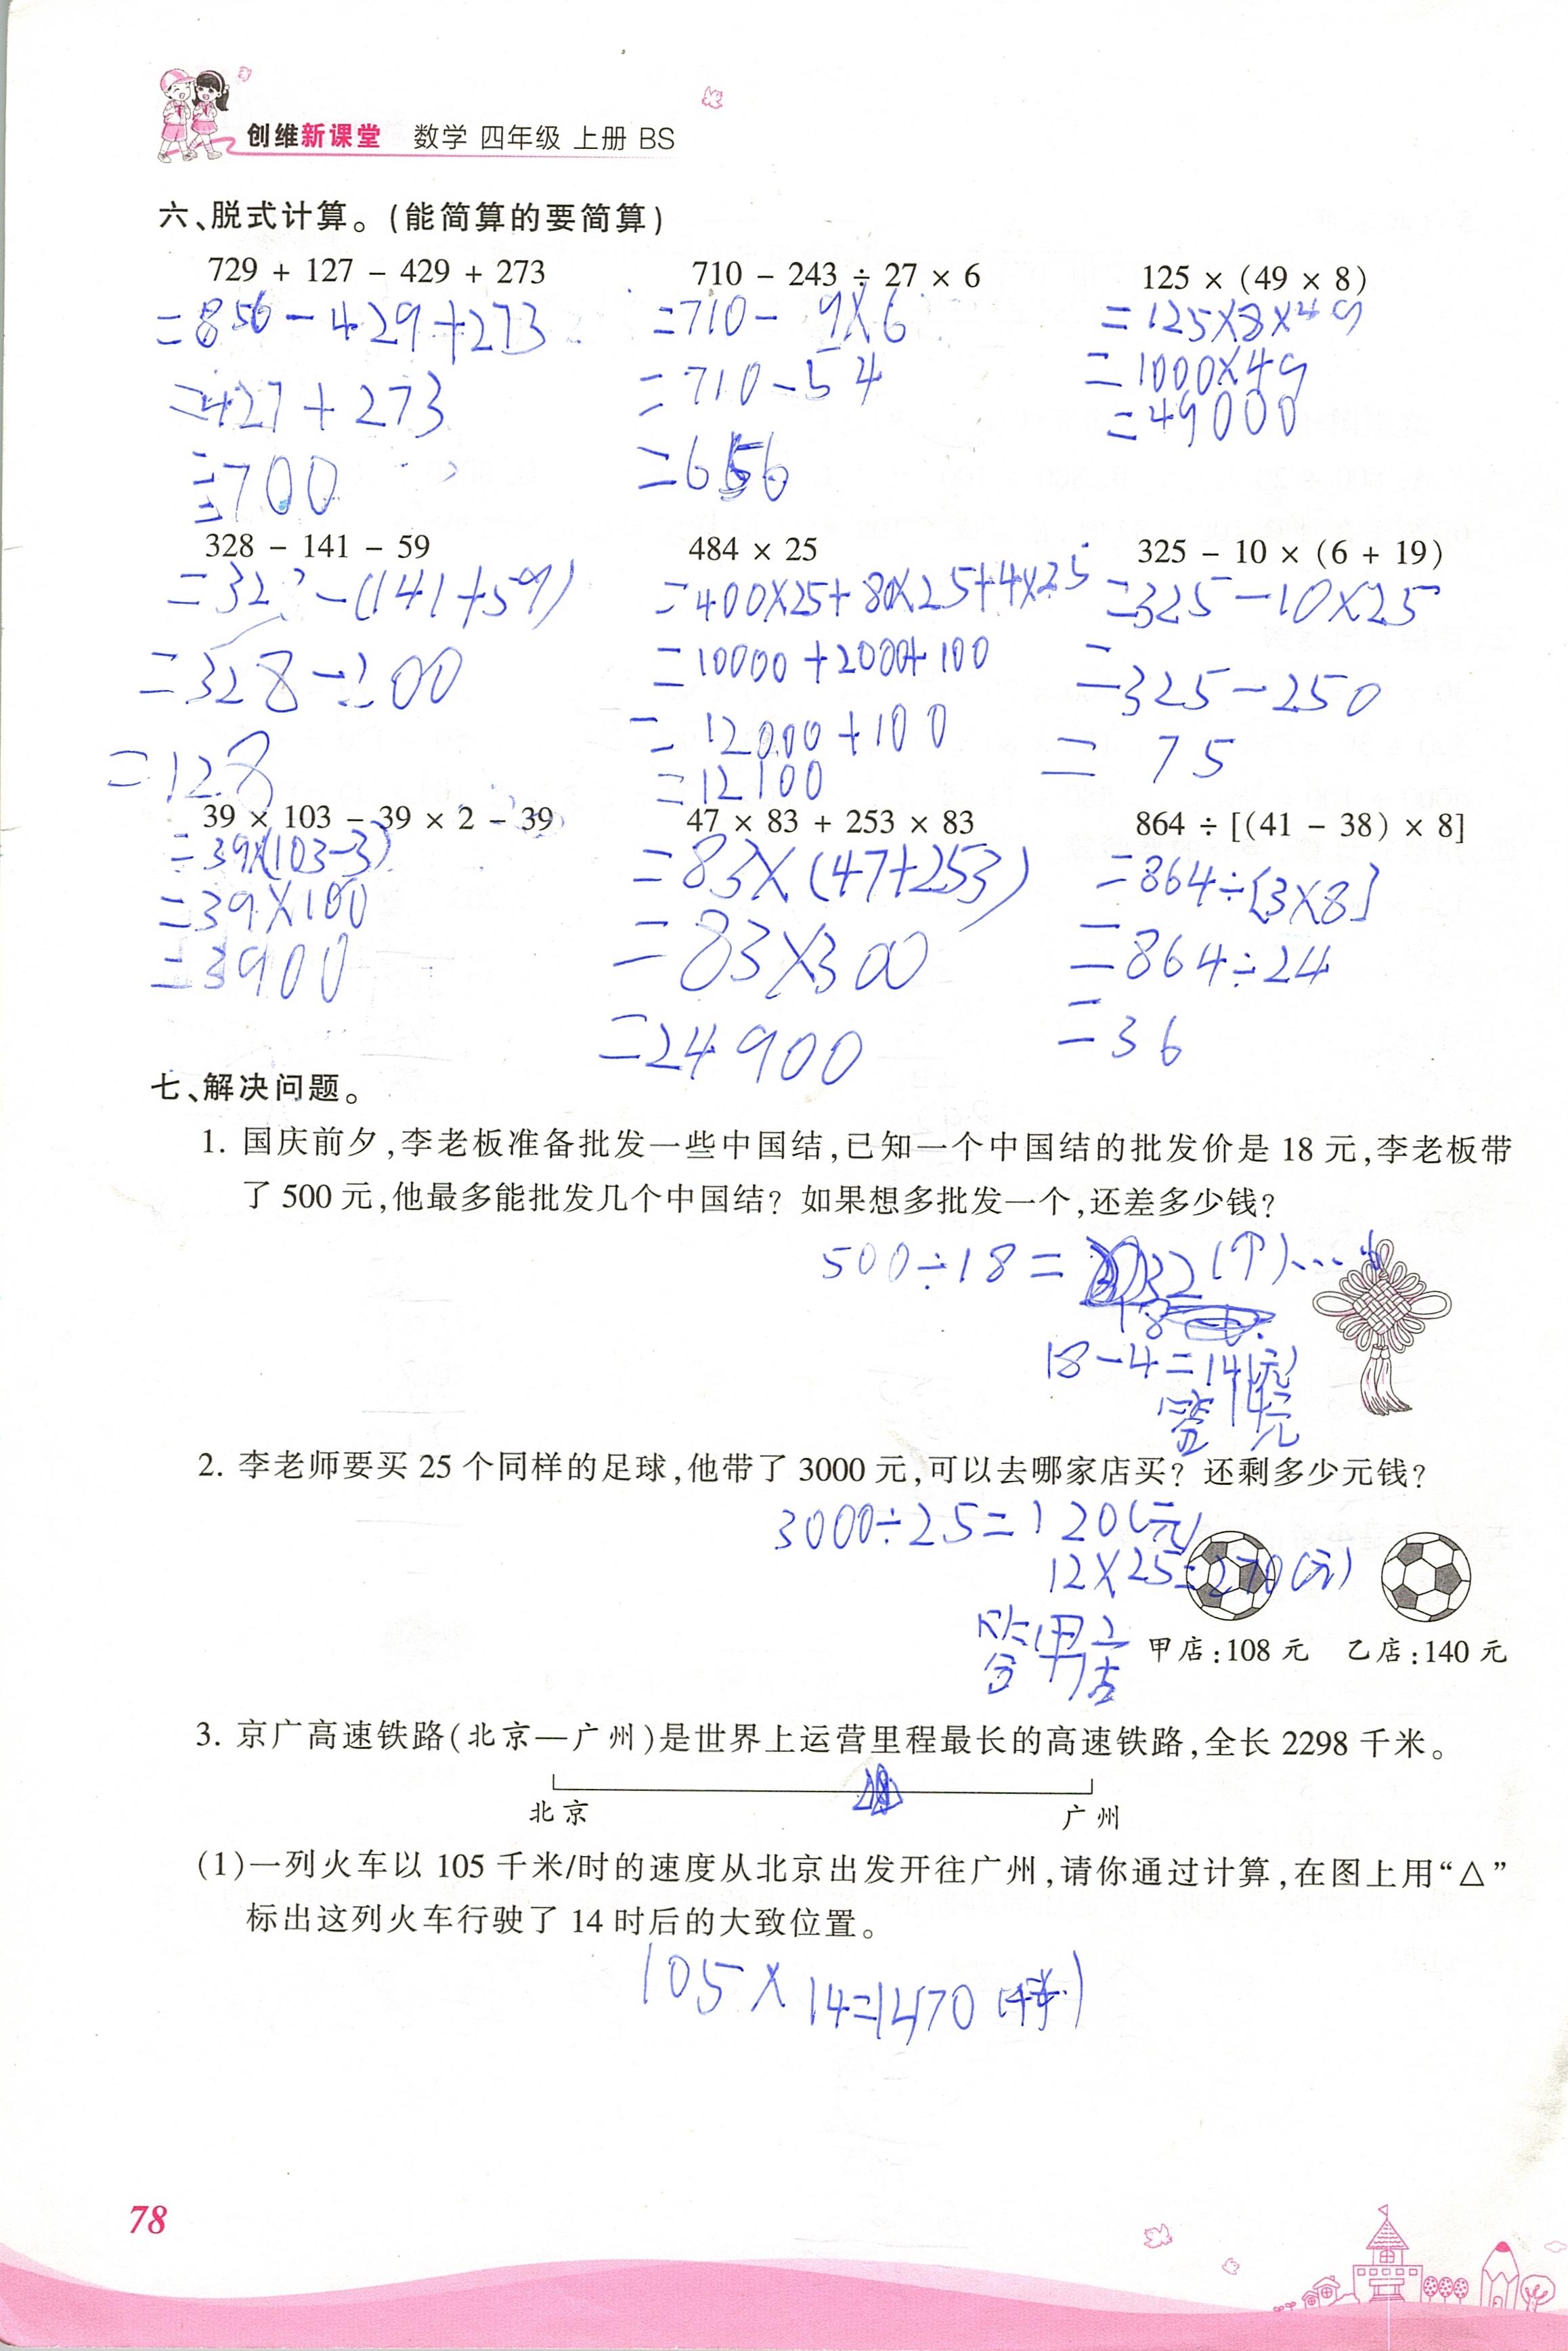 创维新课堂 数学 四年级 上册 BS
六、脱式计算。(能简算的要简算)
729 + 127 - 429 + 273 710 - 243 ÷ 27 × 6 125 × (49 × 8)
=856-429+273 =710- 9×6 =125×8×49
=427+273 =710-54 =1000×49
=700 =656 =49000
328 - 141 - 59 484 × 25 325 - 10 × (6 + 19)
=328-(141+59) =400×25+80×25+4×25 =325-10×25
=328-200 =10000+2000+100 =325-250
=128 =12000+100 =75
=12100
39 × 103 - 39 × 2 - 39 47 × 83 + 253 × 83 864 ÷ [(41 - 38) × 8]
=39×(103-3) =83×(47+253) =864÷[3×8]
=39×100 =83×300 =864÷24
=3900 =24900 =36
七、解决问题。
1. 国庆前夕,李老板准备批发一些中国结,已知一个中国结的批发价是 18 元,李老板带
了 500 元,他最多能批发几个中国结? 如果想多批发一个,还差多少钱?
500÷18= 32(个)…
18
18-4=14(元)
答 14元
2. 李老师要买 25 个同样的足球,他带了 3000 元,可以去哪家店买? 还剩多少元钱?
3000÷25=120(元)
12×25=270(元)
答甲店
甲店:108 元 乙店:140 元
3. 京广高速铁路(北京—广州)是世界上运营里程最长的高速铁路,全长 2298 千米。
北京 广州
(1)一列火车以 105 千米/时的速度从北京出发开往广州,请你通过计算,在图上用“△”
标出这列火车行驶了 14 时后的大致位置。
105×14=1470(千米)
78